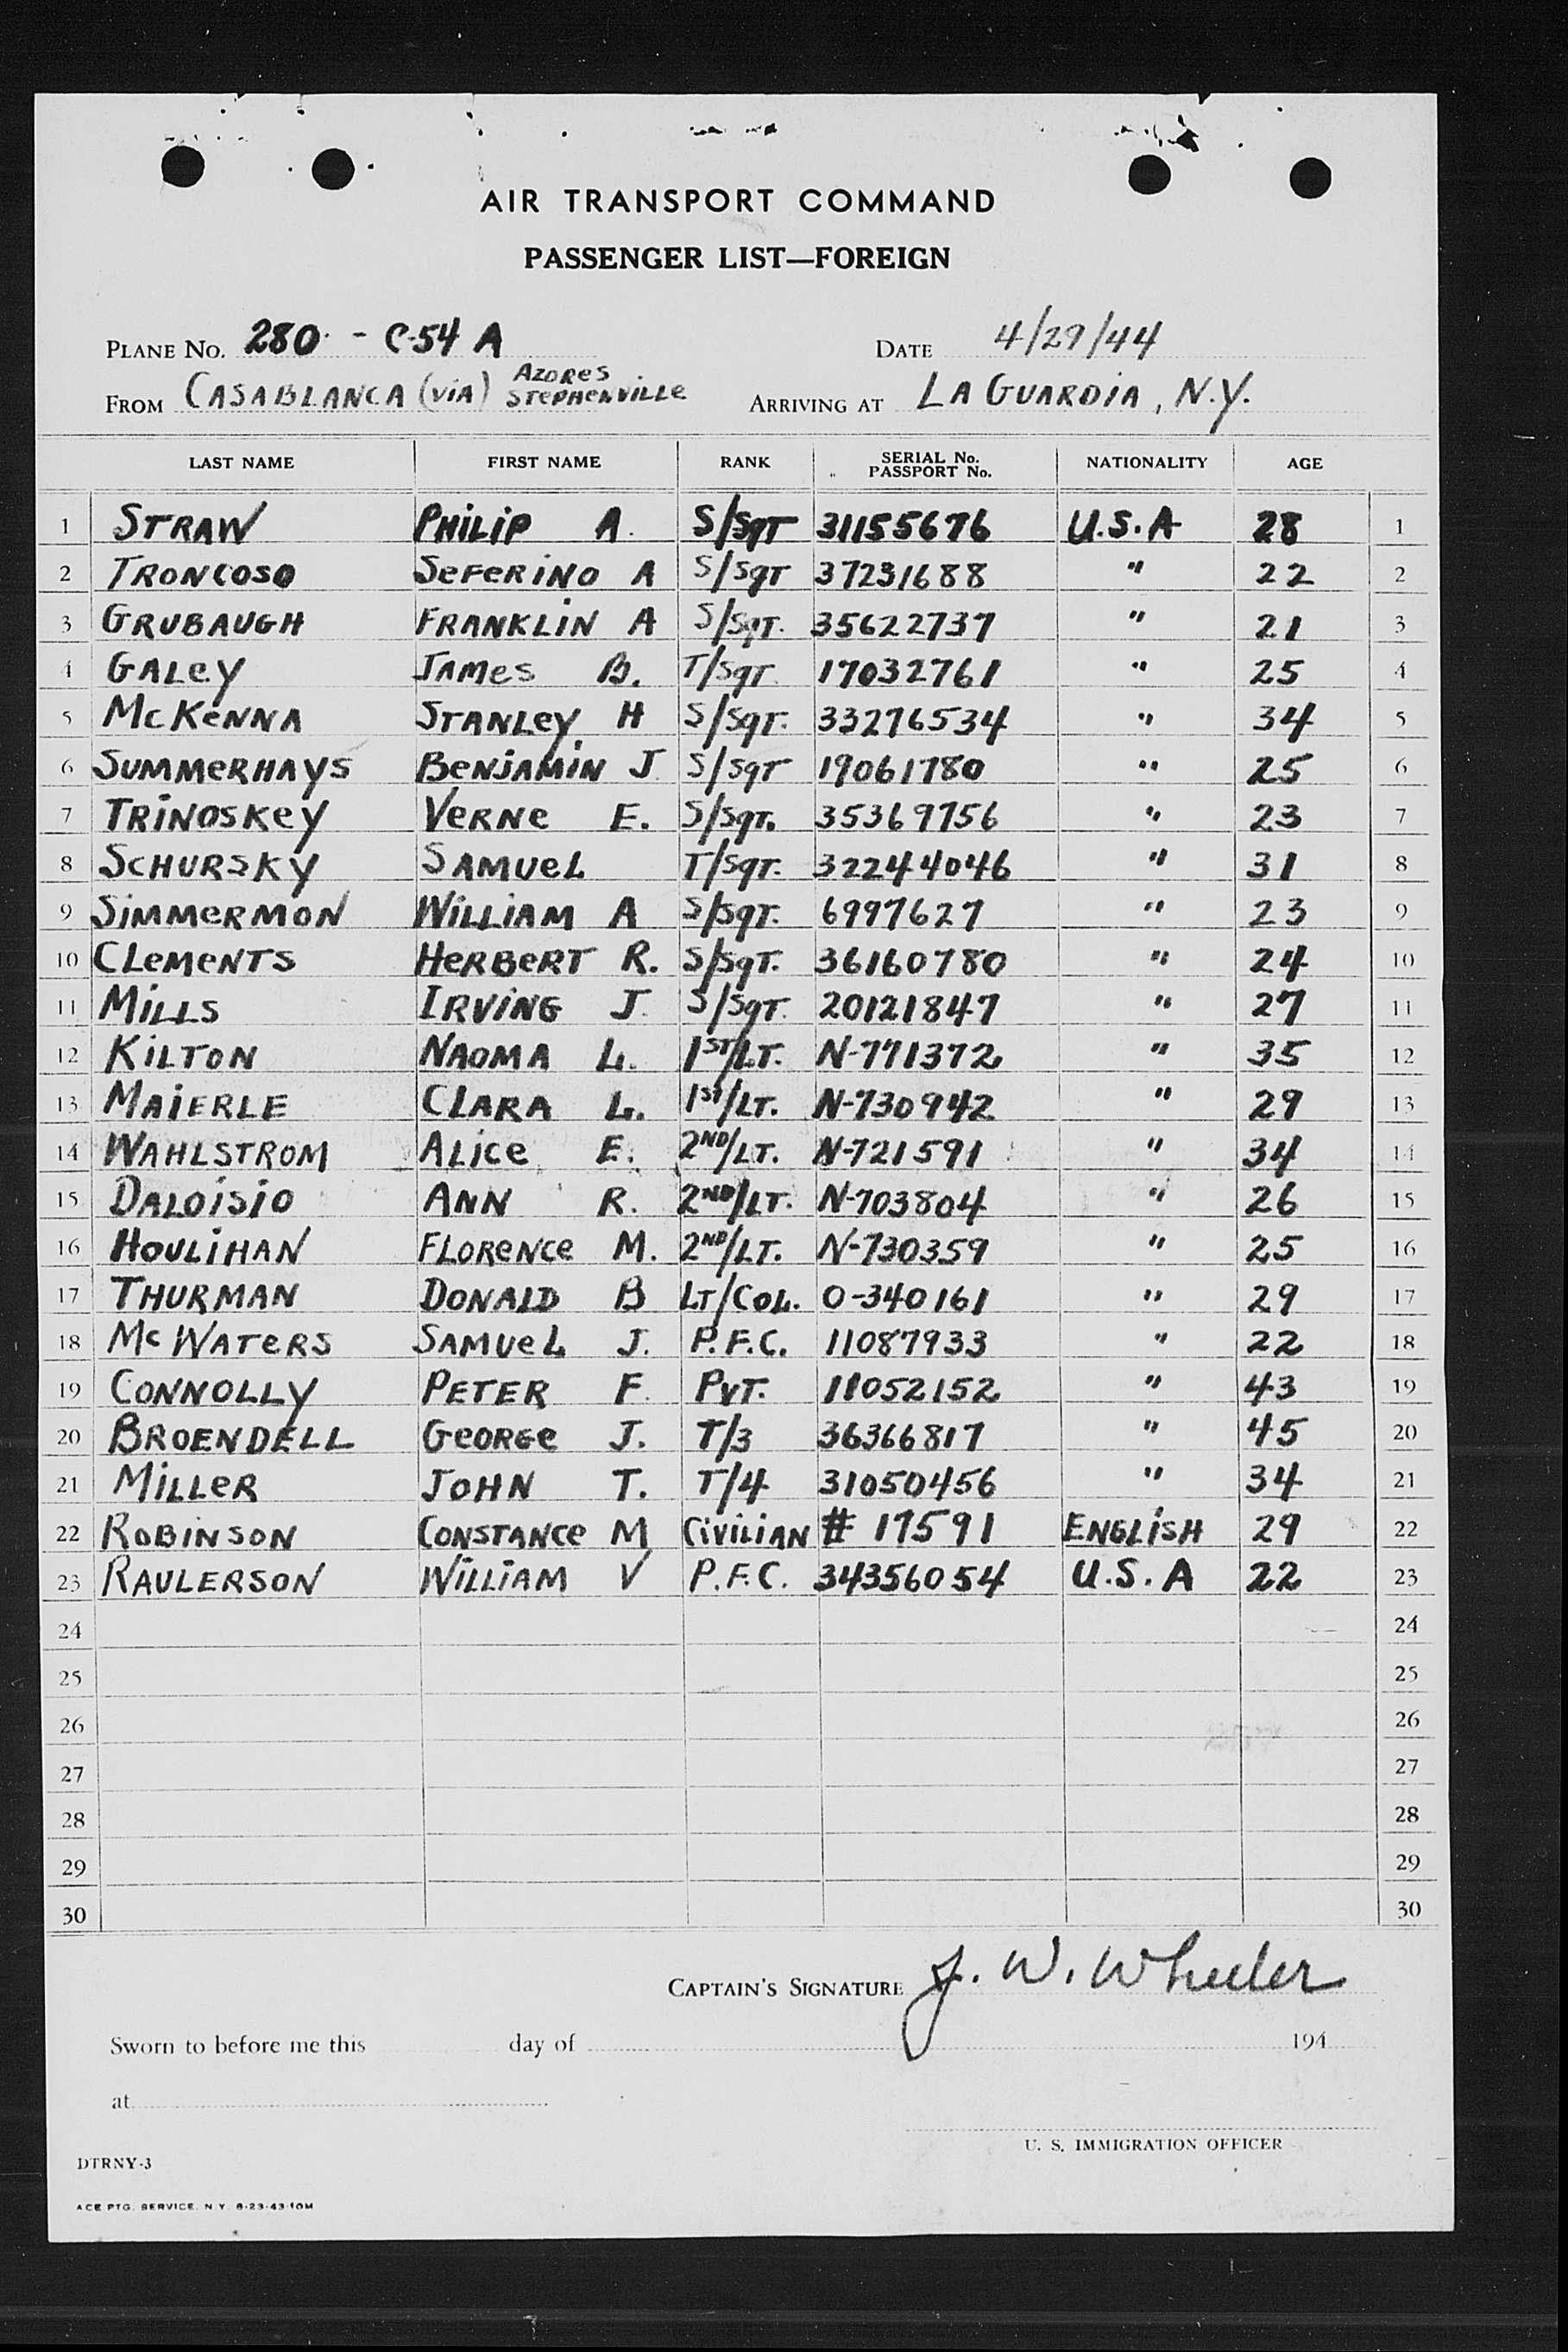 AIR TRANSPORT COMMAND
PASSENGER LIST—FOREIGN
PLANE NO. 280 - C-54 A DATE 4/29/44
FROM CASABLANCA (VIA) AZORES STEPHENVILLE ARRIVING AT LA GUARDIA, N.Y.
LAST NAME FIRST NAME RANK SERIAL No. PASSPORT No. NATIONALITY AGE
1 STRAW PHILIP A. S/SGT 31155676 U.S.A 28 1
2 TRONCOSO SEFERINO A S/SGT 37231688 " 22 2
3 GRUBAUGH FRANKLIN A S/SGT. 35622737 " 21 3
4 GALEY JAMES B. T/SGT 17032761 " 25 4
5 MCKENNA STANLEY H S/SGT. 33276534 " 34 5
6 SUMMERHAYS BENJAMIN J S/SGT 19061780 " 25 6
7 TRINOSKEY VERNE E. S/SGT. 35369756 " 23 7
8 SCHURSKY SAMUEL T/SGT. 32244046 " 31 8
9 SIMMERMON WILLIAM A S/SGT. 6997627 " 23 9
10 CLEMENTS HERBERT R. S/SGT. 36160780 " 24 10
11 MILLS IRVING J. S/SGT. 20121847 " 27 11
12 KILTON NAOMA L. 1ST/LT. N-771372 " 35 12
13 MAIERLE CLARA L. 1ST/LT. N-730942 " 29 13
14 WAHLSTROM ALICE E. 2ND/LT. N-721591 " 34 14
15 DALOISIO ANN R. 2ND/LT. N-703804 " 26 15
16 HOULIHAN FLORENCE M. 2ND/LT. N-730359 " 25 16
17 THURMAN DONALD B LT/COL. O-340161 " 29 17
18 MCWATERS SAMUEL J. P.F.C. 11087933 " 22 18
19 CONNOLLY PETER F. PVT. 11052152 " 43 19
20 BROENDELL GEORGE J. T/3 36366817 " 45 20
21 MILLER JOHN T. T/4 31050456 " 34 21
22 ROBINSON CONSTANCE M CIVILIAN # 17591 ENGLISH 29 22
23 RAULERSON WILLIAM V P.F.C. 34356054 U.S.A 22 23
24 24
25 25
26 26
27 27
28 28
29 29
30 30
CAPTAIN'S SIGNATURE J. W. Wheeler
Sworn to before me this day of 194
at
U. S. IMMIGRATION OFFICER
DTRNY-3
ACE PTG. SERVICE. N.Y. 8-23-43-10M